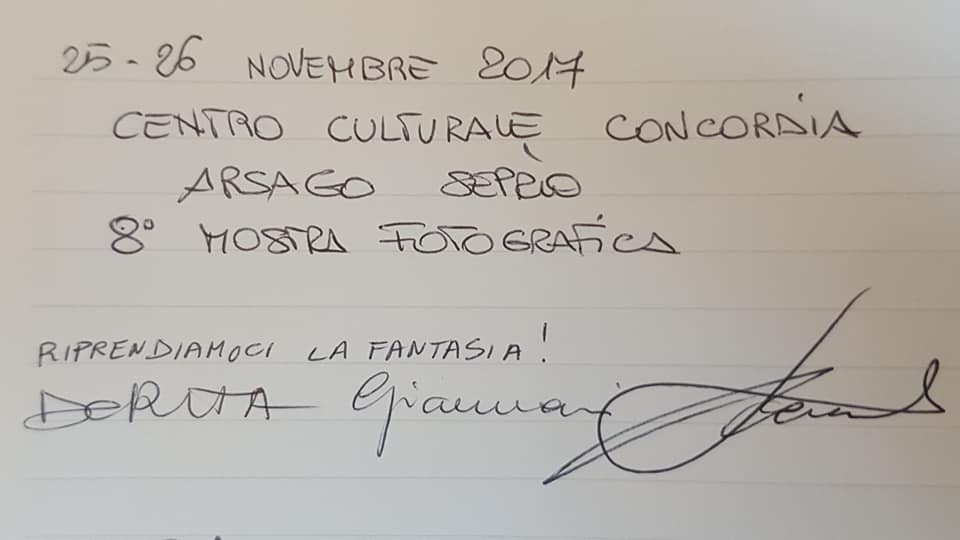 25-26 NOVEMBRE 2017
CENTRO CULTURALE CONCORDIA
ARSAGO SEPRIO
8° MOSTRA FOTOGRAFICA
RIPRENDIAMOCI LA FANTASIA!
DERUTA Gianni